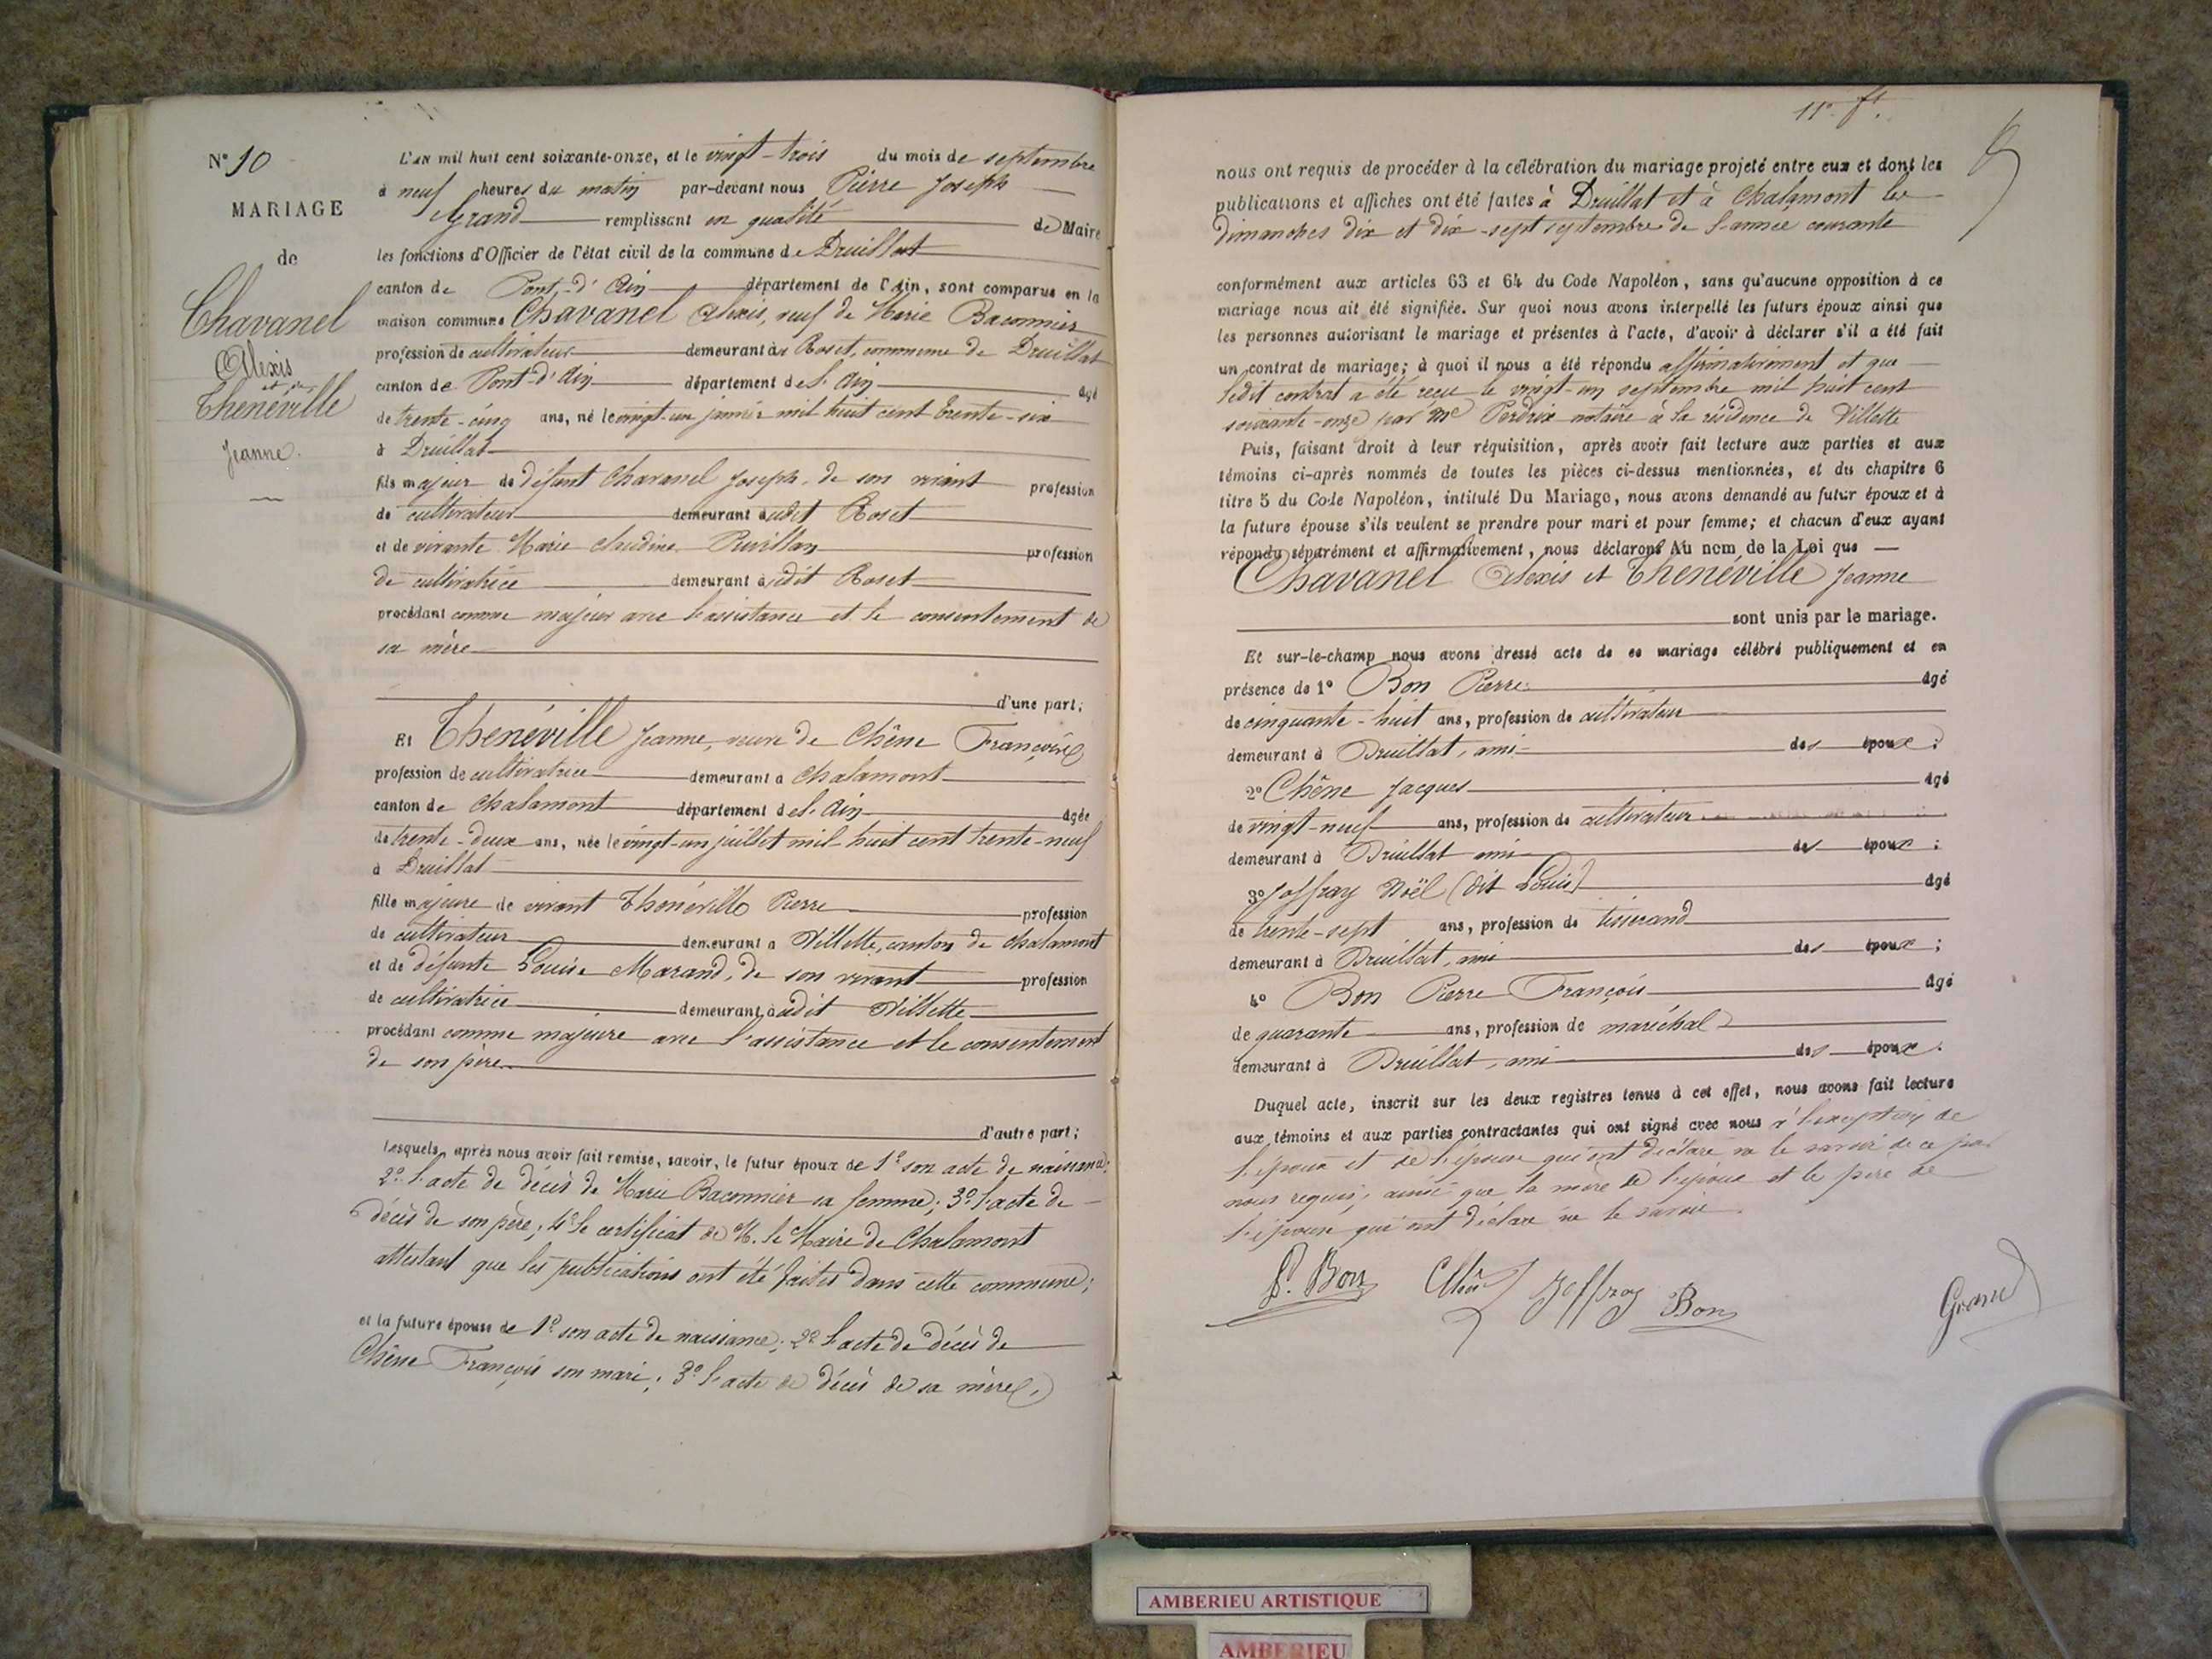 N° 10
MARIAGE
de
Chavanel
Alexis
et de
Thenéville
Jeanne.
L'AN mil huit cent soixante-onze, et le vingt-trois du mois de septembre
à neuf heures du matin par-devant nous Pierre Joseph
Grand remplissant en qualité de Maire
les fonctions d'Officier de l'état civil de la commune de Druillat
canton de Pont-d'Ain département de l'Ain, sont comparus en la
maison commune Chavanel Alexis, veuf de Marie Baconnier
profession de cultivateur demeurant au Roset, commune de Druillat
canton de Pont-d'Ain département de l'Ain âgé
de trente-cinq ans, né le vingt-un janvier mil huit cent trente-six
à Druillat
fils majeur de défunt Chavanel Joseph, de son vivant profession
de cultivateur demeurant audit Roset
et de vivante Marie Claudine profession
de cultivatrice demeurant audit Roset
procédant comme majeur avec l'assistance et le consentement de
sa mère
d'une part;
Et Thenéville Jeanne, veuve de Chêne François
profession de cultivatrice demeurant à Chalamont
canton de Chalamont département de l'Ain âgée
de trente-deux ans, née le vingt-un juillet mil huit cent trente-neuf
à Druillat
fille majeure de vivant Thenéville Pierre profession
de cultivateur demeurant à Villette, canton de Chalamont
et de défunte Louise Marand, de son vivant profession
de cultivatrice demeurant audit Villette
procédant comme majeure avec l'assistance et le consentement
de son père
d'autre part;
Lesquels, après nous avoir fait remise, savoir, le futur époux de 1° son acte de naissance;
2° l'acte de décès de Marie Baconnier sa femme; 3° l'acte de
décès de son père; 4° le certificat de M. le Maire de Chalamont
attestant que les publications ont été faites dans cette commune;
et la future épouse de 1° son acte de naissance; 2° l'acte de décès de
Chêne François son mari; 3° l'acte de décès de sa mère,
11e ft.
nous ont requis de procéder à la célébration du mariage projeté entre eux et dont les
publications et affiches ont été faites à Druillat et à Chalamont les
dimanches dix et dix-sept septembre de l'année courante
conformément aux articles 63 et 64 du Code Napoléon, sans qu'aucune opposition à ce
mariage nous ait été signifiée. Sur quoi nous avons interpellé les futurs époux ainsi que
les personnes autorisant le mariage et présentes à l'acte, d'avoir à déclarer s'il a été fait
un contrat de mariage; à quoi il nous a été répondu affirmativement et que
ledit contrat a été reçu le vingt-un septembre mil huit cent
soixante-onze par Me Perdrix notaire à la résidence de Villette
Puis, faisant droit à leur réquisition, après avoir fait lecture aux parties et aux
témoins ci-après nommés de toutes les pièces ci-dessus mentionnées, et du chapitre 6
titre 5 du Code Napoléon, intitulé Du Mariage, nous avons demandé au futur époux et à
la future épouse s'ils veulent se prendre pour mari et pour femme; et chacun d'eux ayant
répondu séparément et affirmativement, nous déclarons Au nom de la Loi que
Chavanel Alexis et Thenéville Jeanne
sont unis par le mariage.
Et sur-le-champ nous avons dressé acte de ce mariage célébré publiquement et en
présence de 1° Bon Pierre âgé
de cinquante-huit ans, profession de cultivateur
demeurant à Druillat, ami des époux;
2° Chêne Jacques âgé
de vingt-neuf ans, profession de cultivateur
demeurant à Druillat ami des époux;
3° Joffray Noël (dit Louis) âgé
de trente-sept ans, profession de tisserand
demeurant à Druillat, ami des époux;
4° Bon Pierre François âgé
de quarante ans, profession de maréchal
demeurant à Druillat, ami des époux.
Duquel acte, inscrit sur les deux registres tenus à cet effet, nous avons fait lecture
aux témoins et aux parties contractantes qui ont signé avec nous à l'exception de
l'époux et de l'épouse qui ont déclaré ne le savoir de ce par
nous requis, ainsi que la mère de l'époux et le père de
l'épouse qui ont déclaré ne le savoir.
P. Bon Chêne Joffray Bon Grand
AMBERIEU ARTISTIQUE
AMBERIEU